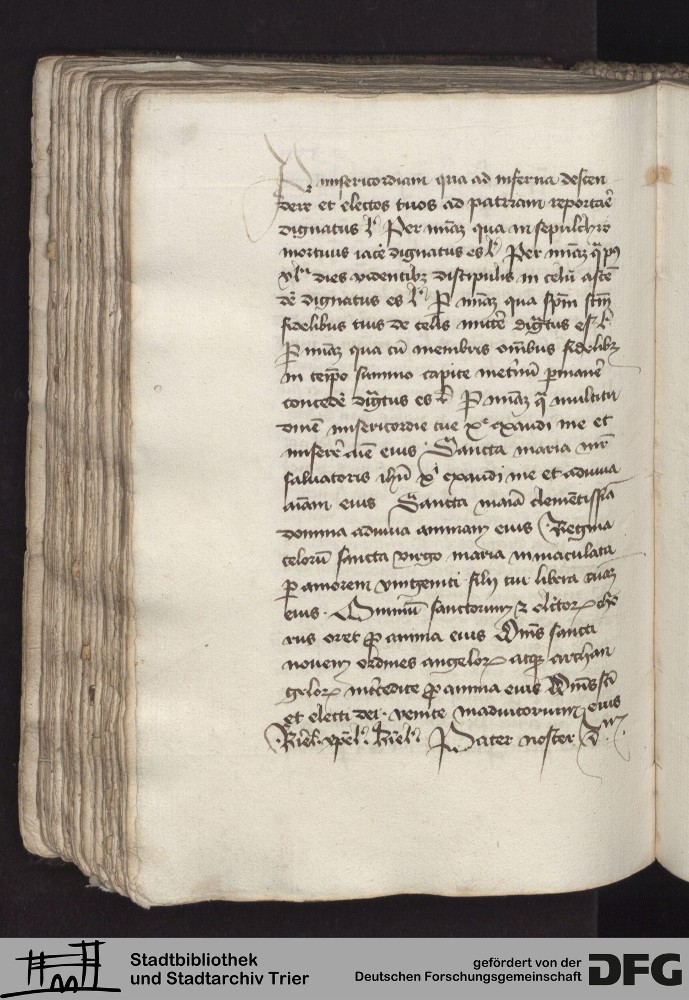 Per misericordiam qua ad inferna descen
dere et electos tuos ad patriam reportare
dignatus Per miam qua in sepulchro
mortuus iacere dignatus es Per miam qua post
xl dies videntibus discipulis in celum ascen
dere dignatus es Per miam qua spm scm
fidelibus tuis de celis mittere digtus es
Per miam qua cum membris omnibus fidelibus
in summo capite permanere
concedere digtus es Per miam qua multitu
dinem misericordie tue xpe exaudi me et
miserere aie eius Sancta maria mr
saluatoris ihu xpi exaudi me et adiuua
aiam eius Sancta maria clementissia
domina adiuua animam eius Regina
celorum sancta virgo maria inmaculata
per amorem vnigeniti filij tui libera
eius Omnium sanctorum et electorum cho
rus oret pro anima eius Omnes sancti
nouem ordines angelorum atque archan
gelorum intercedite pro anima eius Omnes sci
et electi dei venite in adiutorium eius
kirel xpel kirel Pater noster
Stadtbibliothek
und Stadtarchiv Trier
gefördert von der
Deutschen Forschungsgemeinschaft
DFG